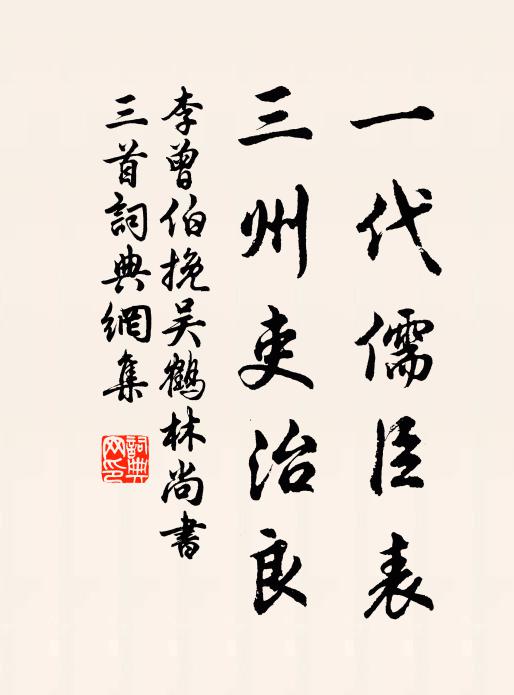 一代儒臣表
三州吏治良
李曾伯挽吴鶴林尚書
三首詞典網集
詞典网印